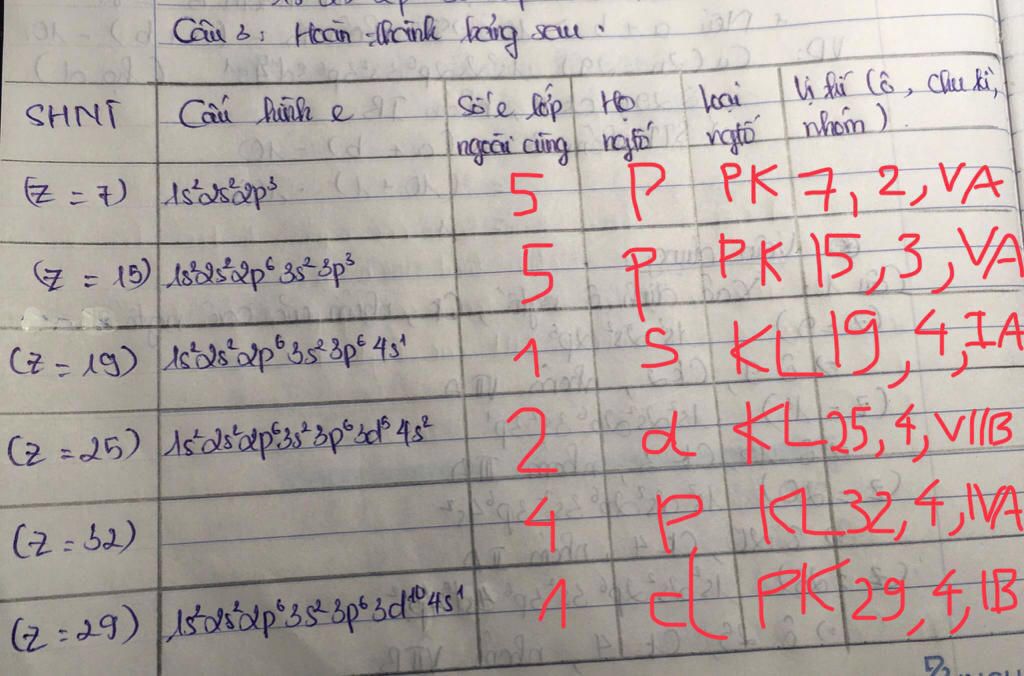 Câu 3: Hoàn thành bảng sau:
SHNT Cấu hình e Số e lớp Họ loại Vị trí (ô, chu kì,
ngoài cùng ngtố ngtố nhóm)
(Z = 7) 1s²2s²2p³ 5 P PK 7, 2, VA
(Z = 15) 1s²2s²2p⁶3s²3p³ 5 P PK 15, 3, VA
(Z = 19) 1s²2s²2p⁶3s²3p⁶4s¹ 1 S KL 19, 4, IA
(Z = 25) 1s²2s²2p⁶3s²3p⁶3d⁵4s² 2 d KL 25, 4, VIIB
(Z = 32) 4 P KL 32, 4, IVA
(Z = 29) 1s²2s²2p⁶3s²3p⁶3d¹⁰4s¹ 1 d PK 29, 4, IB